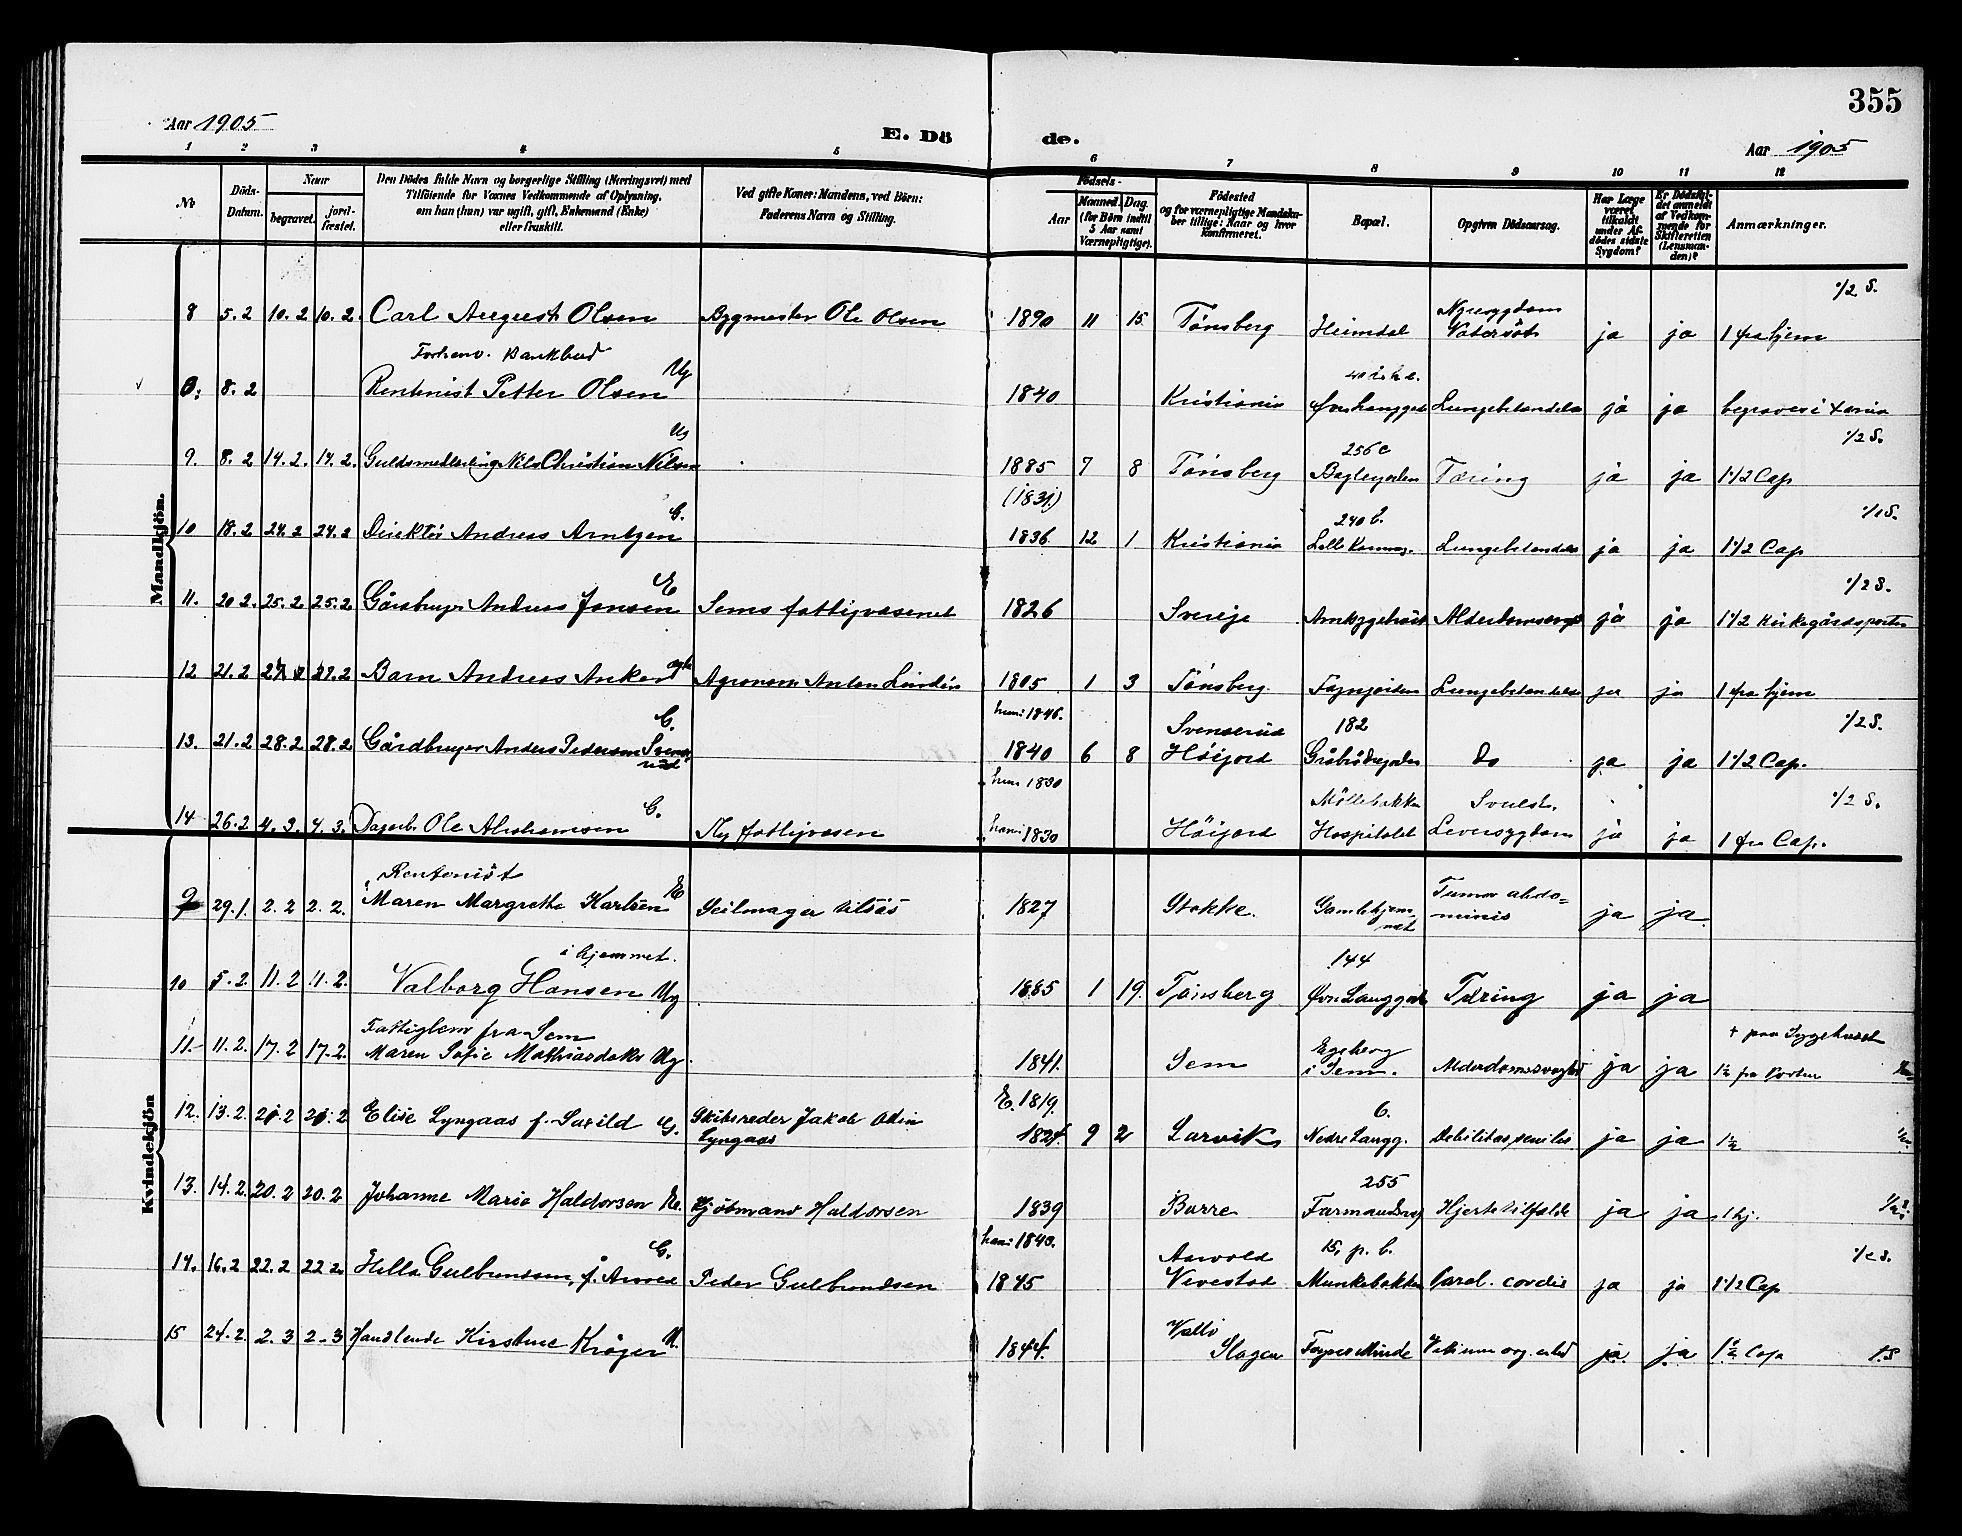 355
Aar 1905
E. Dö de.
Aar 1905
1 2 3 4 5 6 7 8 9 10 11 12
No
Döds-Datum.
Naar
begravet.
jord-fæstet.
Den Dödes fulde Navn og borgerlige Stilling (Næringsvei) med
Tilföiende för Voxnes Vedkommende af Oplysning,
om han (hun) var ugift, gift, Enkemand (Enke)
eller fraskilt.
Ved gifte Koner: Mandens, ved Börn:
Faderens Navn og Stilling.
Födsels-
Aar
Maaned. Dag.
(for Börn indtil
5 Aar samt
Værnepligtige).
Födested
og for værnepligtige Mandska-
ber tillige: Naar og hvor
konfirmeret.
Bopæl.
Opgiven Dödsaarsag.
Har Læge
været
tilkaldt
under Af-
dödes sidste
Sygdom?
Er Dödsfal-
det anmeldt
af Vedkom-
mende for
Skifteretten
(Lensman-
den)?
Anmærkninger.
Mandkjön.
8 5.2 10.2 10.2 Carl August Olsen Bygmester Ole Olsen 1890 11 15 Tönsberg Heimdal Nyresygdom Vatersot ja ja 1 fra hjem 1/2 S.
Forhenv. Bankbud
0: 8.2 Rentenist Petter Olsen Ug 1840 Kristiania ja ja
9. 8.2 14.2. 14.2. Nils Christian Nilsen Ug 1885 7 8 Tönsberg 256 c Tæring ja ja 1 1/2 Cap 1/2 S.
10 18.2 24.2 24.2 Direktör Andreas Arntzen G. (1831) 1836 12 1 Kristiania 240 b. ja ja 1 1/2 Cap 1/1 S.
11. 20.2. 25.2 25.2 Gårdbruger Andreas Jansen E Sems fattigvæsenet 1826 Sverige ja ja 1 1/2 Kirkegårdsporten 1/2 S.
12 21.2 27.2 27.2 Barn Andreas Anker Agronom Anton Lindén 1905 1 3 Tönsberg ja ja 1 fra hjem
13. 21.2 28.2 28.2 Gårdbruger Anders Pedersen Svenserud G. 1840 6 8 Svenserud Höijord 182 Do ja ja 1 1/2 Cap. 1/2 S.
14 26.2 4.3. 4.3. Dagarb. Ole Abrahamsen G. fattigvæsen 1830 Höijord Möllebakken Hospitalet Svulst. Leversygdom ja ja 1 fra Cap. 1/2 S.
Kvindekjön
Rentenist
9 29.1. 2.2 2.2. Maren Margrethe Karlsen E Seilmager 1827 Stokke. Gamlehjemmet Tumor abdominis ja ja
i hjemmet.
10 5.2. 11.2 11.2. Valborg Hansen Ug 1885 1 19. Tönsberg 144 Tæring ja ja
Fattiglem fra Sem
11. 11.2. 17.2 17.2. Maren Sofie Mathiasdatter Ug. 1841. Sem Egeberg i Sem. Alderdomssvaghed ja ja + paa Sygehuset
12. 13.2. 20.2 20.2 Elise Lyngaas f. Saxild G. Skibsreder Jakob Odin Lyngaas E. 1819. 1824 9 2 Larvik 6. Nedre Langg. Debilitas senilis ja ja 1 1/2
13. 14.2. 20.2 20.2 Johanne Marie Haldorsen E. Kjöbmand Haldorsen 1839 Borre 255 Hjertetilfælde ja ja 1 hj.
14. 16.2 22.2 22.2 Helle Gulbrandsen, f. G. Peder Gulbrandsen 1845 Aarvold Vivestad 15, p. b. Munkebakken Paral. cordis ja ja 1 1/2 Cap 1/2 S.
15 24.2. 2.3 2.3 Handlende Kirstine Kröger 1844. Vallö Slagen Vitium org. cord ja ja 1 1/2 Cap 1.S